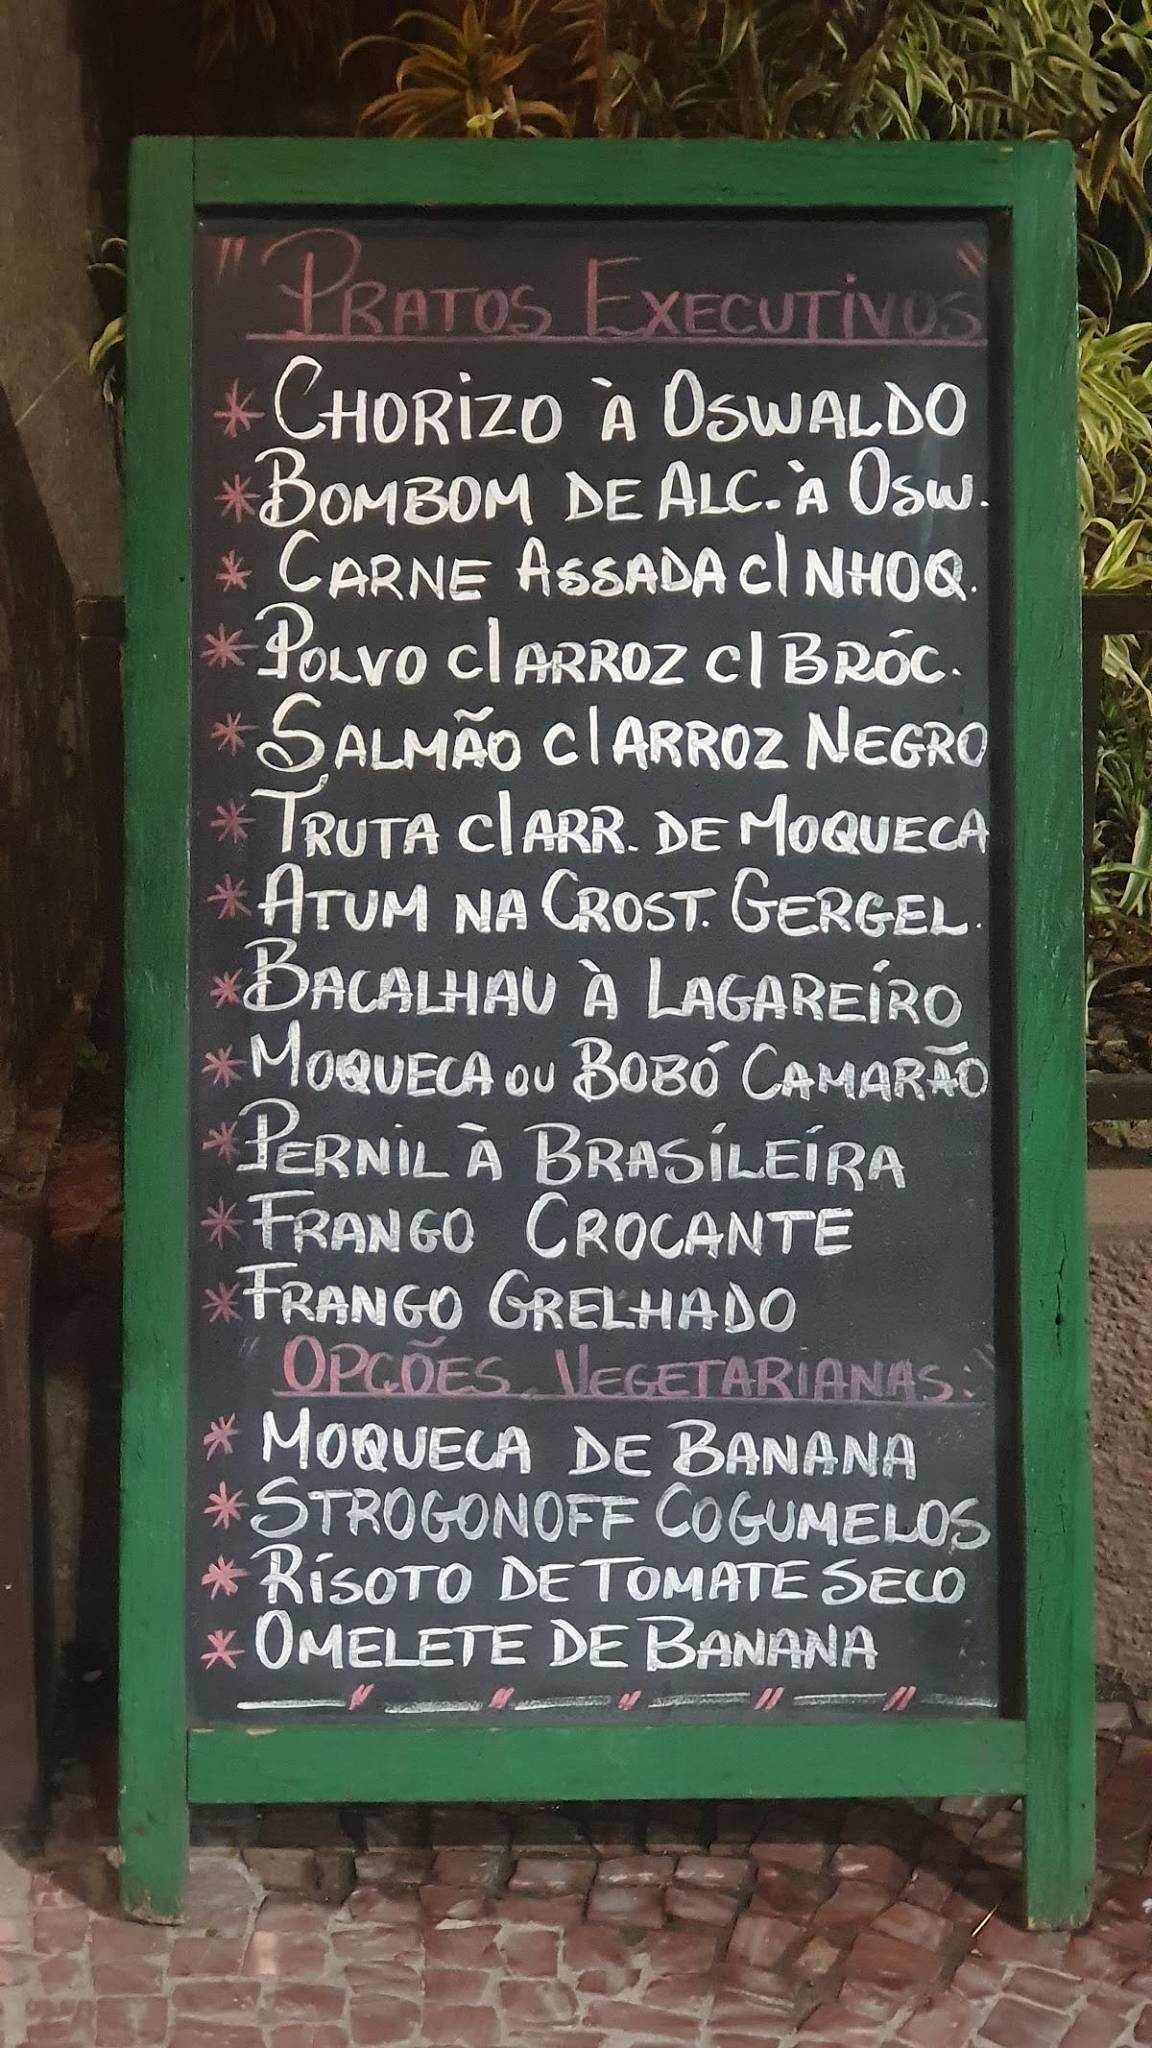 "Pratos Executivos"
* Chorizo à Oswaldo
* Bombom de Alc. à Osw.
* Carne Assada c/ Nhoq.
* Polvo c/ Arroz c/ Bróc.
* Salmão c/ Arroz Negro
* Truta c/ Arr. de Moqueca
* Atum na Crost. Gergel.
* Bacalhau à Lagareíro
* Moqueca ou Bobó Camarão
* Pernil à Brasíleíra
* Frango Crocante
* Frango Grelhado
"Opções Vegetarianas:"
* Moqueca de Banana
* Strogonoff Cogumelos
* Risoto de Tomate Seco
* Omelete de Banana